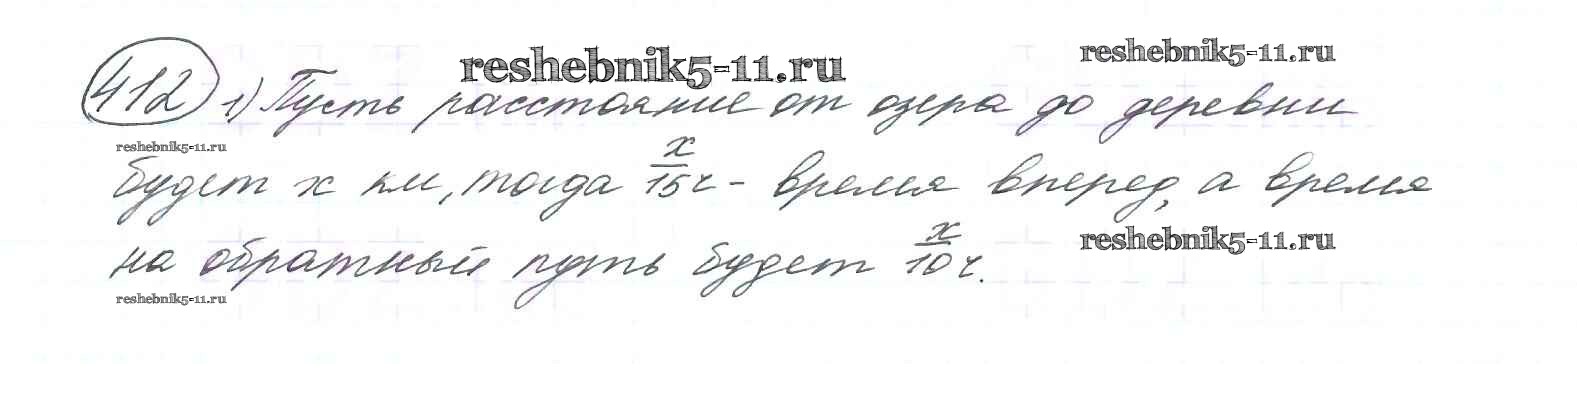 reshebnik5-11.ru
reshebnik5-11.ru
412 1) Пусть расстояние от озера до деревни
reshebnik5-11.ru
будет x км, тогда x/15 ч - время вперед, а время
reshebnik5-11.ru
на обратный путь будет x/10 ч.
reshebnik5-11.ru